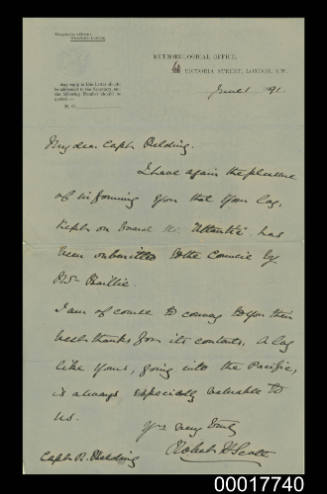 METEOROLOGICAL OFFICE,
VICTORIA STREET, LONDON, S.W.
Any reply to this Letter should
be addressed to the Secretary, and
the following Number should be
quoted:—
June 1 91
My dear Capt.
I have again the pleasure
of informing you that your log,
kept on board the has
been submitted to the Council by
Mr Baillie.
I am of course to convey to you their
best thanks for its contents. A log
like yours, going into the Pacific,
is always especially valuable to
us.
Yrs very truly
Robert H Scott
Capt. R.
00017740